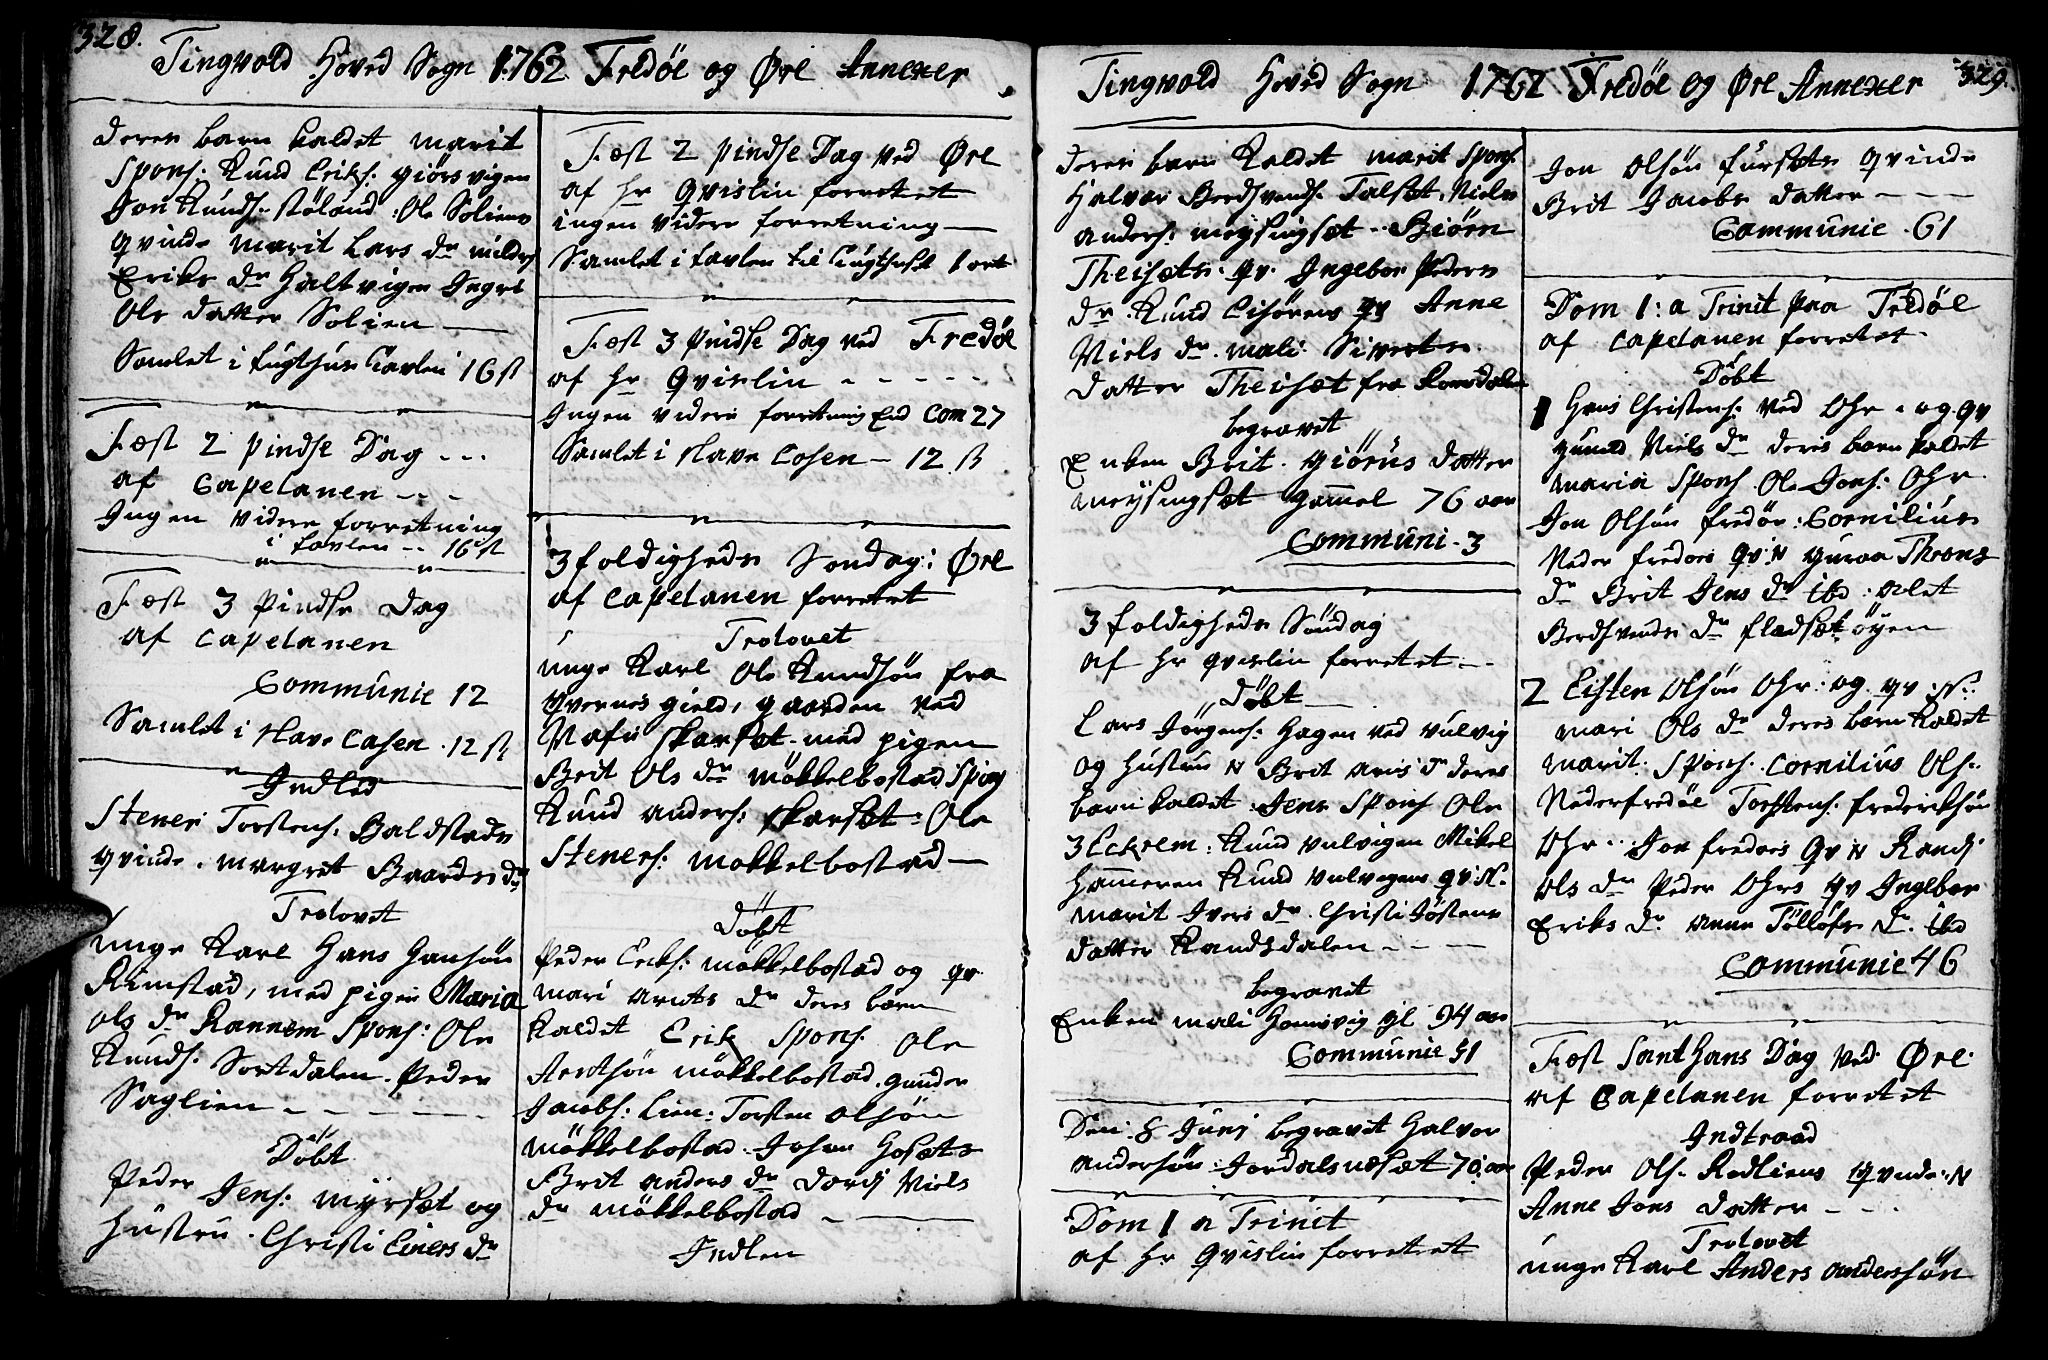 328.
Tingvold Hoved Sogn 1762 Fredöe og Øre Annexer
deres barn kaldet marit
Spons: Knud Eriks: giörsvigen
Jon Knuds: stöland: Ole Soliens
qvinde marit Lars dr
Eriks dr Haltvigen Ingri
Ols datter Solien
Samlet i tugthus tavlen 16 ß
Fæst 2 pindse Dag
af Capelanen
Ingen videre forretning
i tavlen 16 ß
Fæst 3 Pindse Dag
af Capelanen
Communic 12
Samlet i Have Casen 12 ß
Indled
Stener Torstens: Baldstads
qvinde margret Baards dr
Trolovet
unge Karl Hans Hansön
Rimstad, med pigen Maria
ols dr Rannem Spons: Ole
Knuds: Sortdalen Peder
Saglien
Döbt
Peder Jens: myrset og
hustru Christi Einers dr
Fæst 2 pindse Dag ved Øre
af hr Qvislin forrettet
ingen videre forretning
Samlet i tavlen til tugthuset 1 ort
Fæst 3 Pindse Dag ved Fredöe
af hr Qvislin
Ingen videre forretning End Com 27
Samlet i Have Cosen 12 ß
3foldigheds Söndag i Øre
af Capelanen forrettet
Trolovet
unge Karl Ole Knudsön fra
Qvernes gield, gaarden ved
Skarset med pigen
Brit Ols dr möckelbostad Spons
Knud anders: Skarset: Ole
Steners: mokkelbostad
Döbt
Peder Eriks: mökkelbostad og qv
mari arnts dr deres barn
kaldet Erik Spons: Ole
Arntsön mökkelbostad gunder
Jacobs: Lien: Torsten olsön
mökkelbostad Johan Hosets
Brit anders dr Dordi Niels
dr mökkelbostad
Indlen
329.
Tingvold Hoved Sogn 1762 Fredöe og Øre Annexer
deres barn kaldet marit Spons:
Halvor Bersvends: Talset Niels
anders: meysingset Biörn
Theisets qv Ingebor Peders
dr Knud Eisörens qv Anne
Niels dr mali Siverts
datter Theiset fra Romsdalen
begravet
Enken Brit giörus datter
meysingset gammel 76 aar
Communi 3
3foldigheds Söndag
af hr qvislin forrettet
Döbt
Lars Jörgens: Hagen ved vulvig
og hustru N Brit aris dr deres
barn kaldet Jens Spons Ole
Eckrem: Knud vulvigen Mikel
Hammeren Knud vulvigens qv: N.
marit Ivers dr Christi Jöstens
datter Randsdalen
begravet
Enken mali Homsvig gl 94 aar
Communic 51
Den 8 Junj begravet Halvor
andersön Jordalsneset 70 aar
Dom 1 a Trinit
af hr Qvislin forrettet
Jon Olsön fursets qvinde
Brit Jacobs datter
Communic 61
Dom 1: a Trinit paa Fredöe
af Capelanen forrettet
Döbt
1 Hans Christens: ved Ohr og qv
gunild Niels dr deres barn kaldet
maria Spons Ole Jons: Ohr
Jon Olsön fredöe: Cornilius
Neder fredöes qv: N guroa Throns
dr Brit Jens dr ibd: alet
Berdsvends dr fladset öyen
2 Eisten Olsön Ohr: og qv: N:
mari Ols dr deres barn kaldet
marit: Spons Cornilius Ols:
Nederfredöe Torstens: frederiksön
Ohr Jon fredöes qv N Randi
ols dr Peder Ohrs qv Ingebor
Eriks dr anne Tölløfs dr ibd
Communic 46
Fæst Sant Hans Dag ved Øre
af Capelanen forrettet
Indtraad
Peder Ols: Rodliens qvinde: N
Anne Jons datter
Trolovet
unge Karl Anders andersön